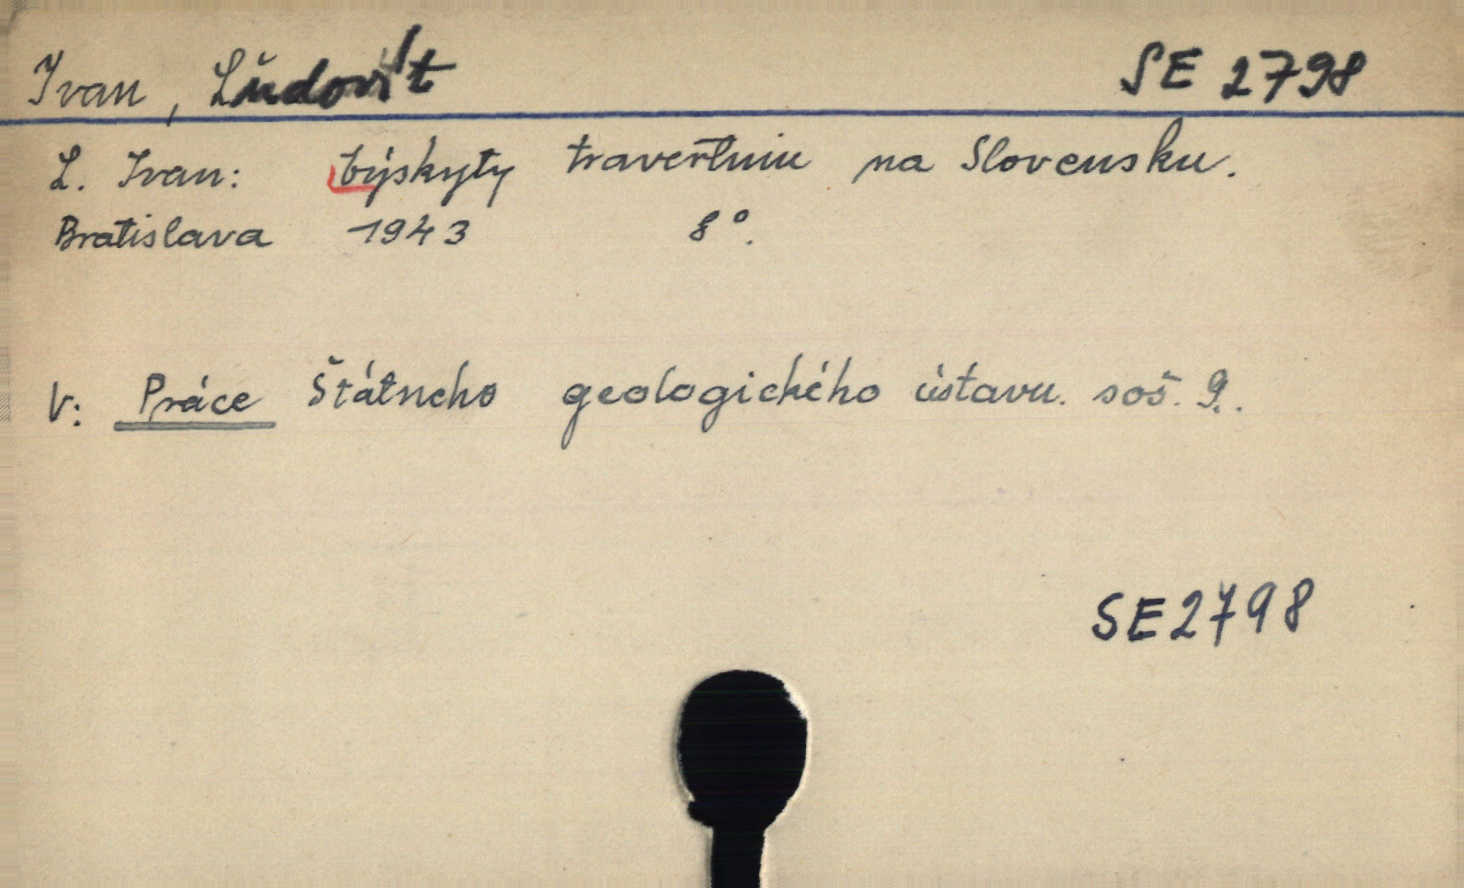 Ivan, Ľudovít SE 2798
L. Ivan: Výskyty travertínu na Slovensku.
Bratislava 1943 8°.
V: Práce Štátneho geologického ústavu. soš. 9.
SE2798